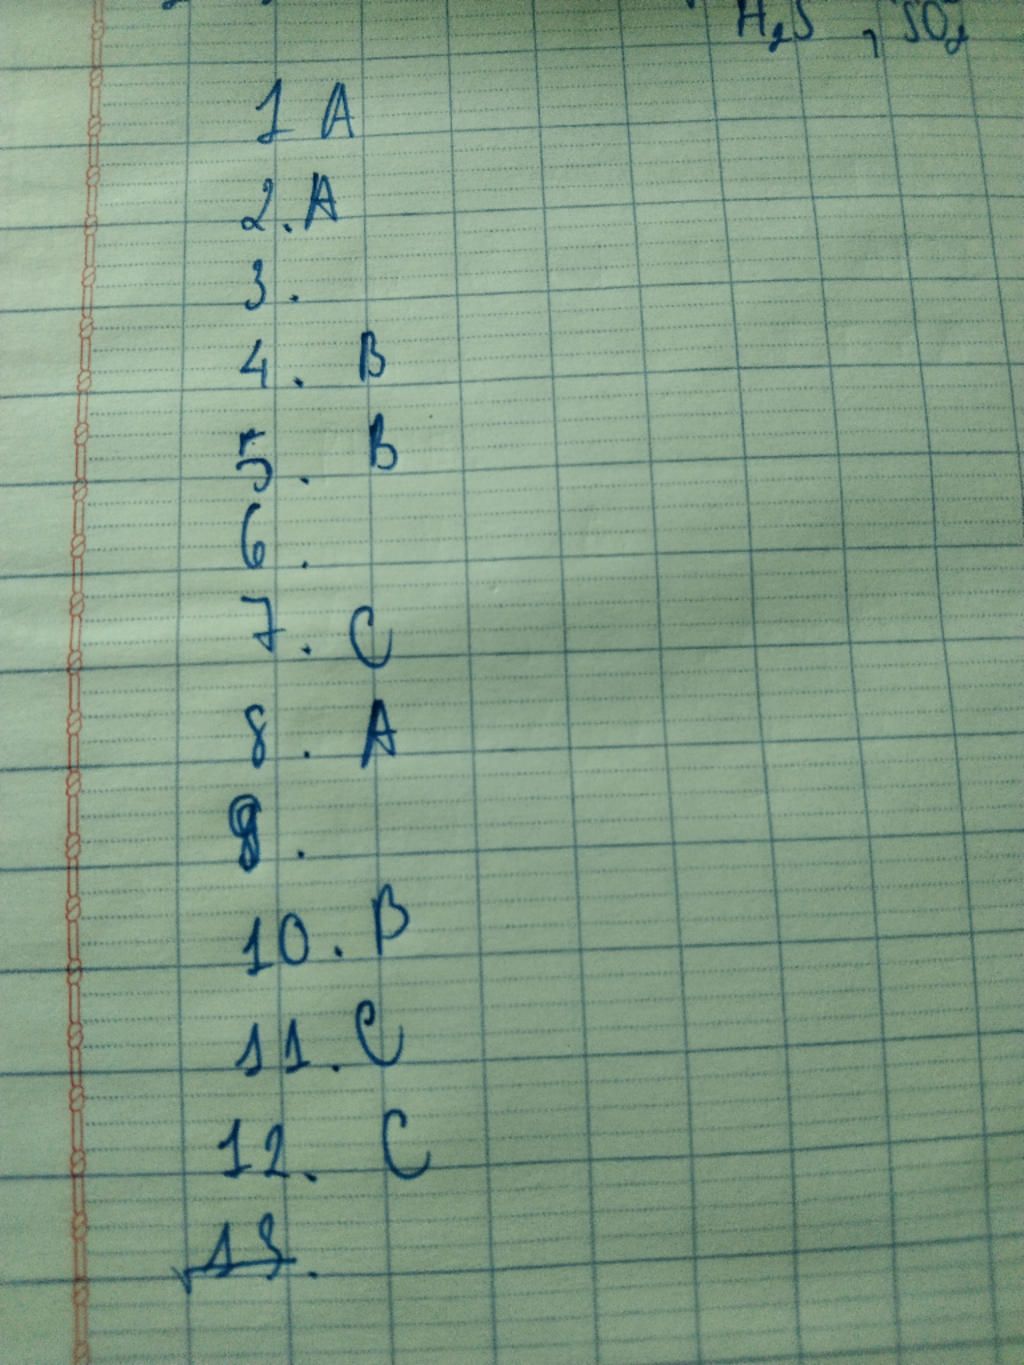 H₂S , SO₂
1 A
2. A
3.
4. B
5. B
6.
7. C
8. A
9.
10. B
11. C
12. C
13.